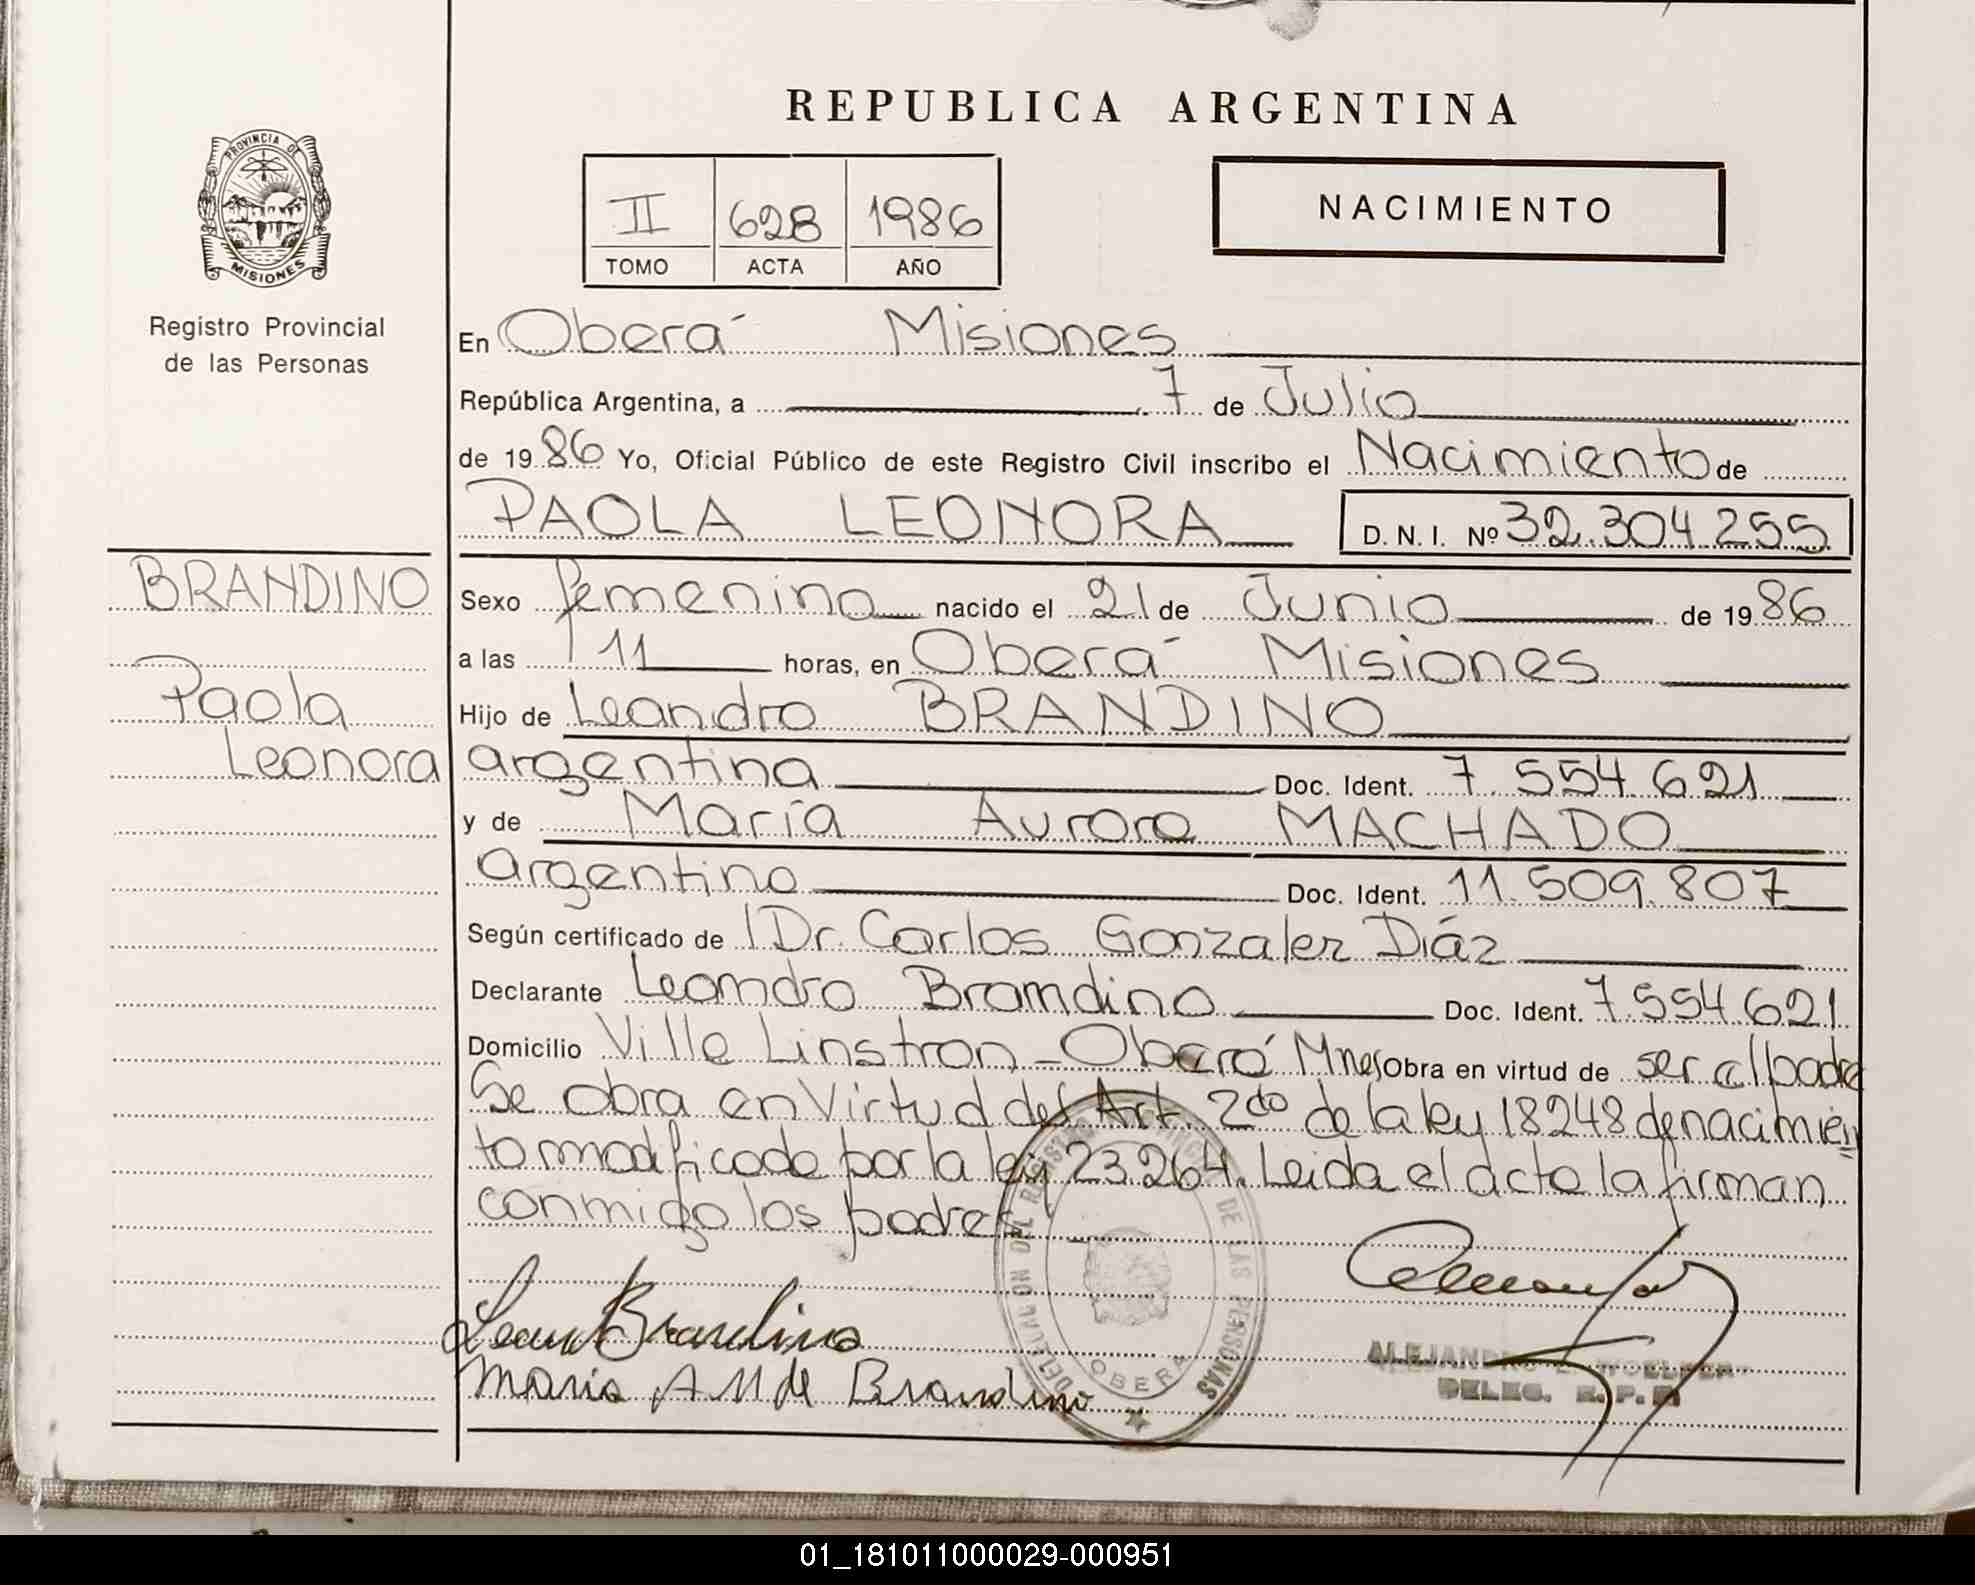 REPUBLICA ARGENTINA
PROVINCIA DE
MISIONES
Registro Provincial
de las Personas
II 628 1986
TOMO ACTA AÑO
NACIMIENTO
En Oberá Misiones
República Argentina, a 7 de Julio
de 1986 Yo, Oficial Público de este Registro Civil inscribo el Nacimiento de
PAOLA LEONORA D. N. I. Nº 32.304.255
BRANDINO
Paola
Leonora
Sexo femenino nacido el 21 de Junio de 1986
a las 11 horas, en Oberá Misiones
Hijo de Leandro BRANDINO
argentina Doc. Ident. 7.554.621
y de María Aurora MACHADO
argentina Doc. Ident. 11.509.807
Según certificado de Dr. Carlos Gonzalez Diáz
Declarante Leandro Brandino Doc. Ident. 7.554.621
Domicilio Villa Linstron - Oberá Mnes, obra en virtud de ser el padre
Se obra en Virtud del Art. 2do de la ley 18248 de nacimien
to modificado por la ley 23.264. Leida el acta la firman
conmigo los padres
Brandino
Maria A M de Brandino
DE LAS PERSONAS
OBERA
DELEG. R. P. P.
01_181011000029-000951